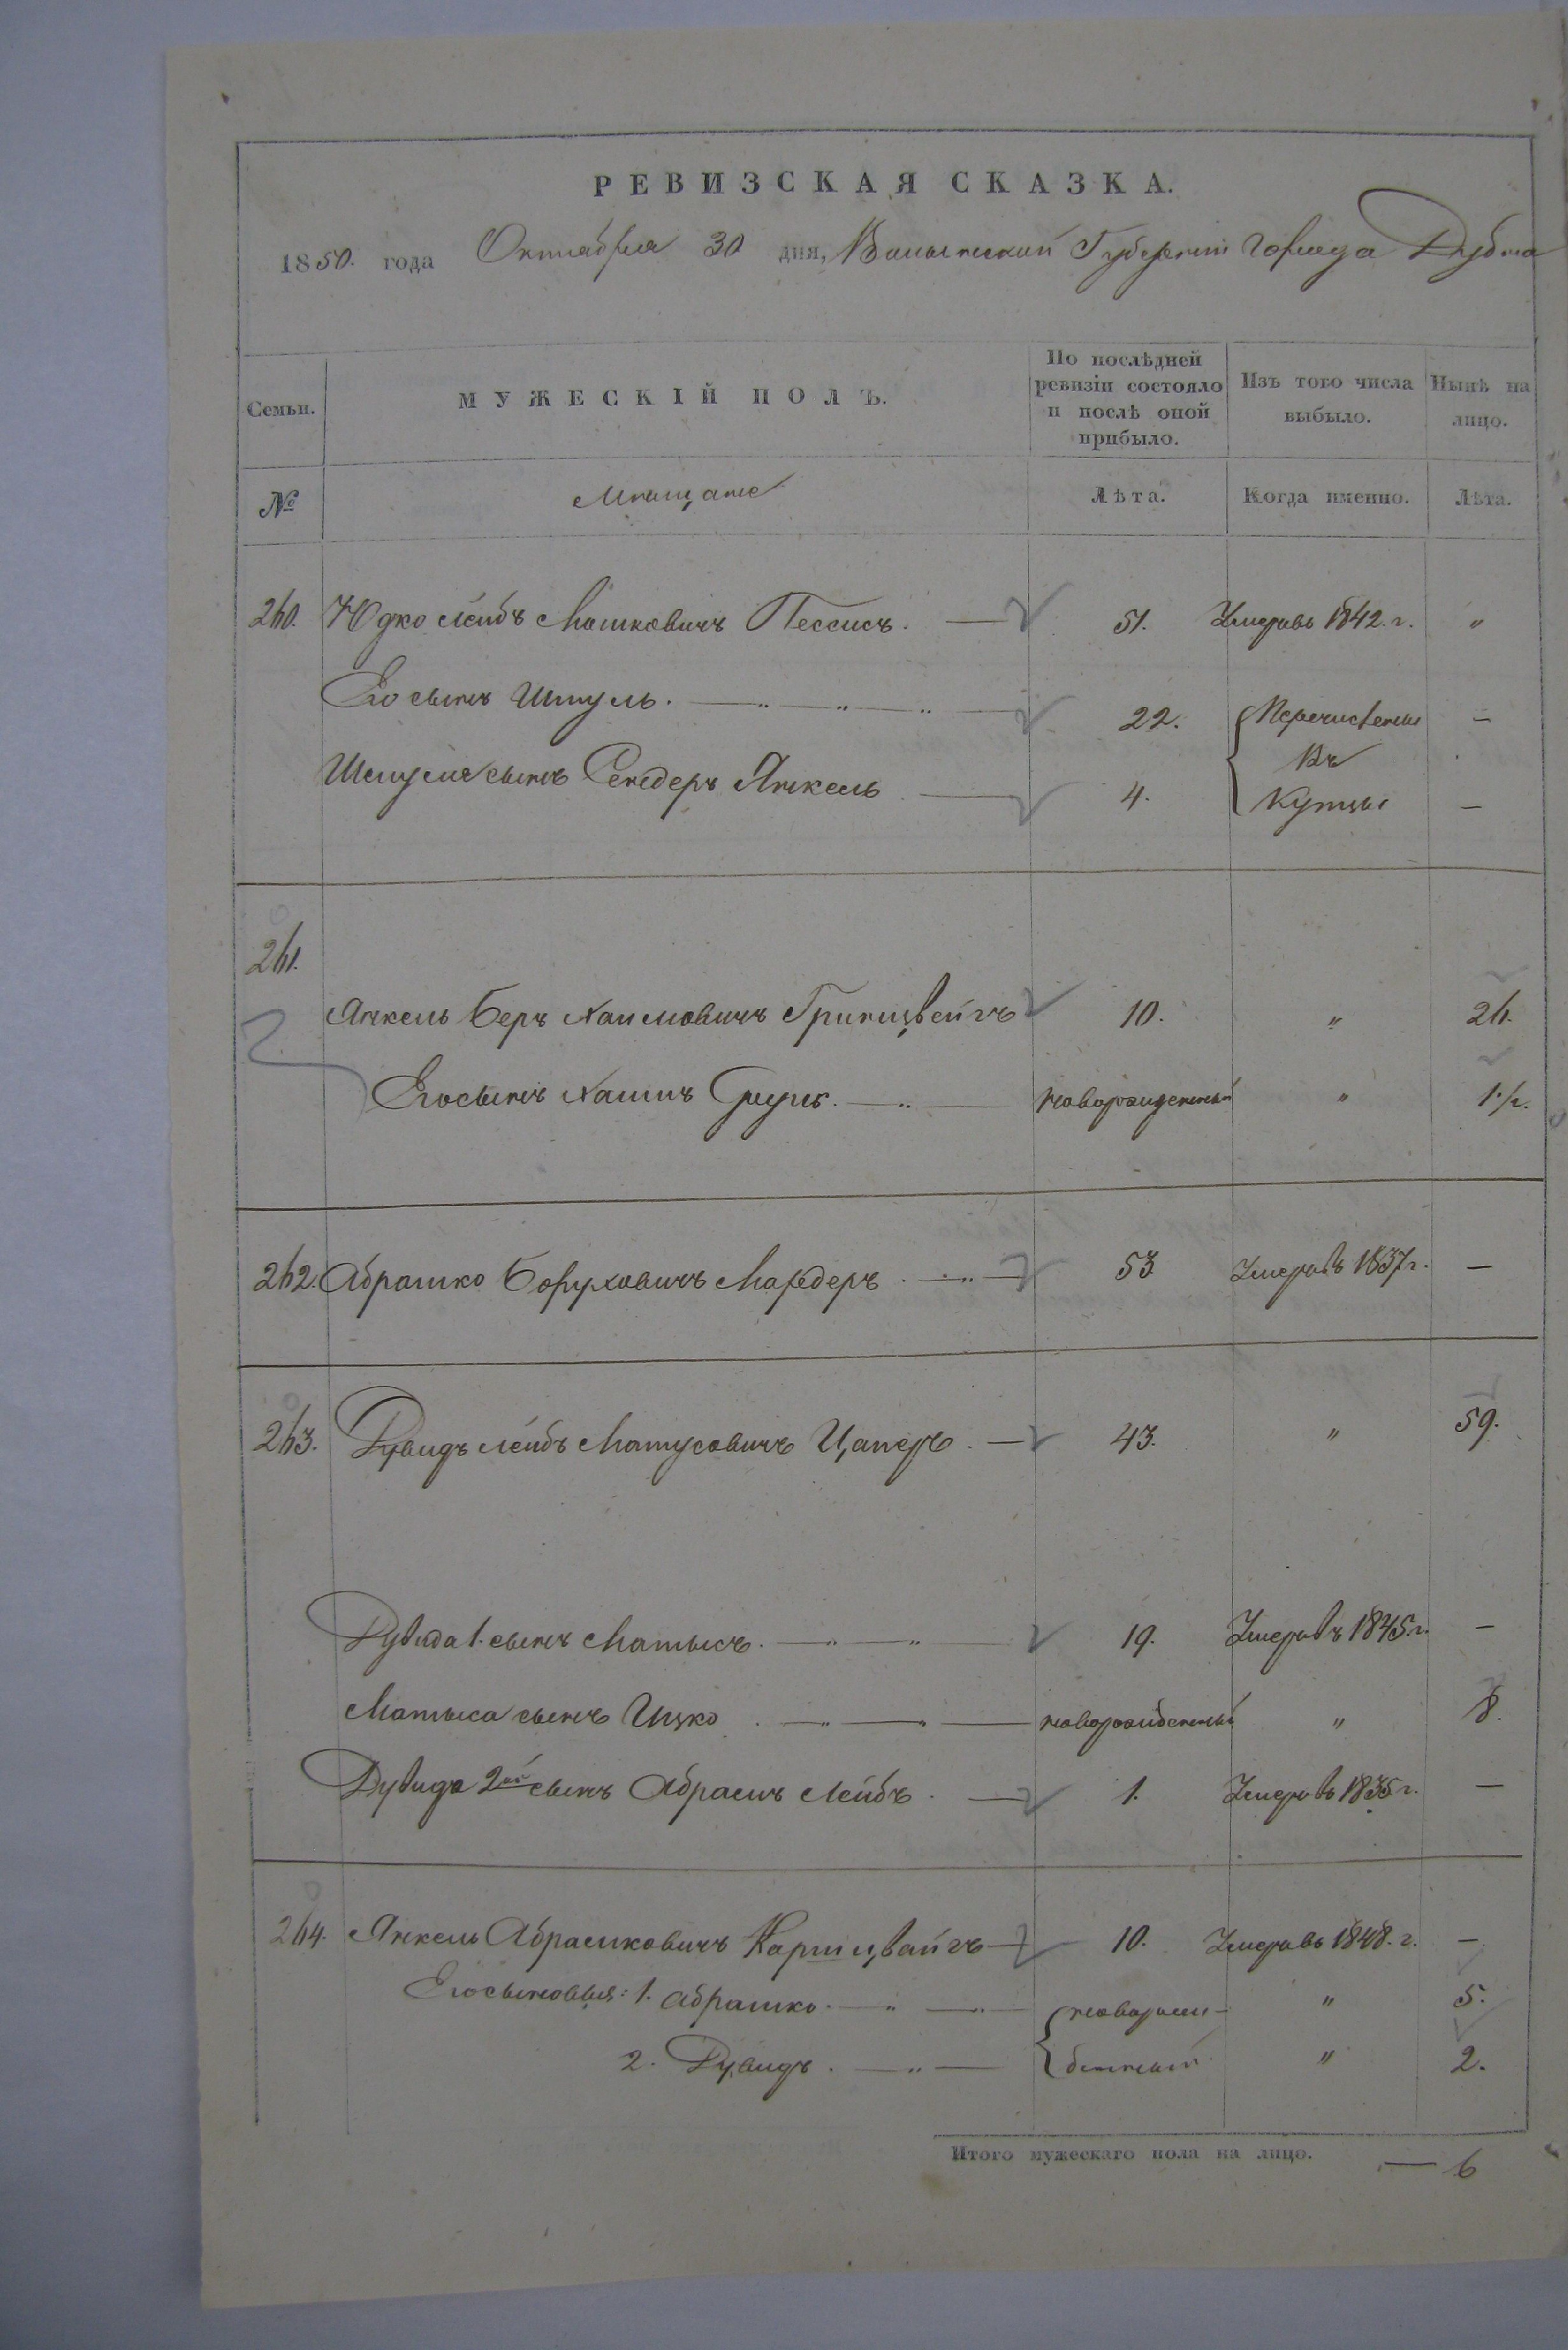 РЕВИЗСКАЯ СКАЗКА.
1850. года Октября 30 дня, Волынской Губерніи Города Дубна
Семьи. МУЖЕСКІЙ ПОЛЪ. По послѣдней ревизіи состояло и послѣ оной прибыло. Изъ того числа выбыло. Нынѣ на лицо.
№ Мѣщане Лѣта. Когда именно. Лѣта.
260. Юдко Лейбъ Мошковичъ Пессисъ. 51. Умеръ въ 1842. г. "
Его сынъ Шмуль. 22. Перечислены —
Въ
Шмуля сынъ Сендеръ Янкель 4. Купцы —
261.
Янкель Беръ Хаимовичъ Гринцвейгъ 10. " 26.
Его сынъ Хаимъ новорожденный " 1/2.
262. Абрамко Боруховичъ Мардеръ 53 Умеръ въ 1837 г. —
263. Дувидъ Лейбъ Матусовичъ Цаперъ 43. " 59.
Дувида 1. сынъ Матысъ. 19. Умеръ въ 1845. г. —
Матыса сынъ Ицко новорожденный " 8.
Дувида 2ой сынъ Абрамъ Лейбъ 1. Умеръ въ 1835 г. —
264. Янкель Абрамковичъ Карпцвайгъ 10. Умеръ въ 1848. г. —
Его сыновья: 1. Абрамко новорож- " 5.
2. Дувидъ денный " 2.
Итого мужескаго пола на лицо. — 6